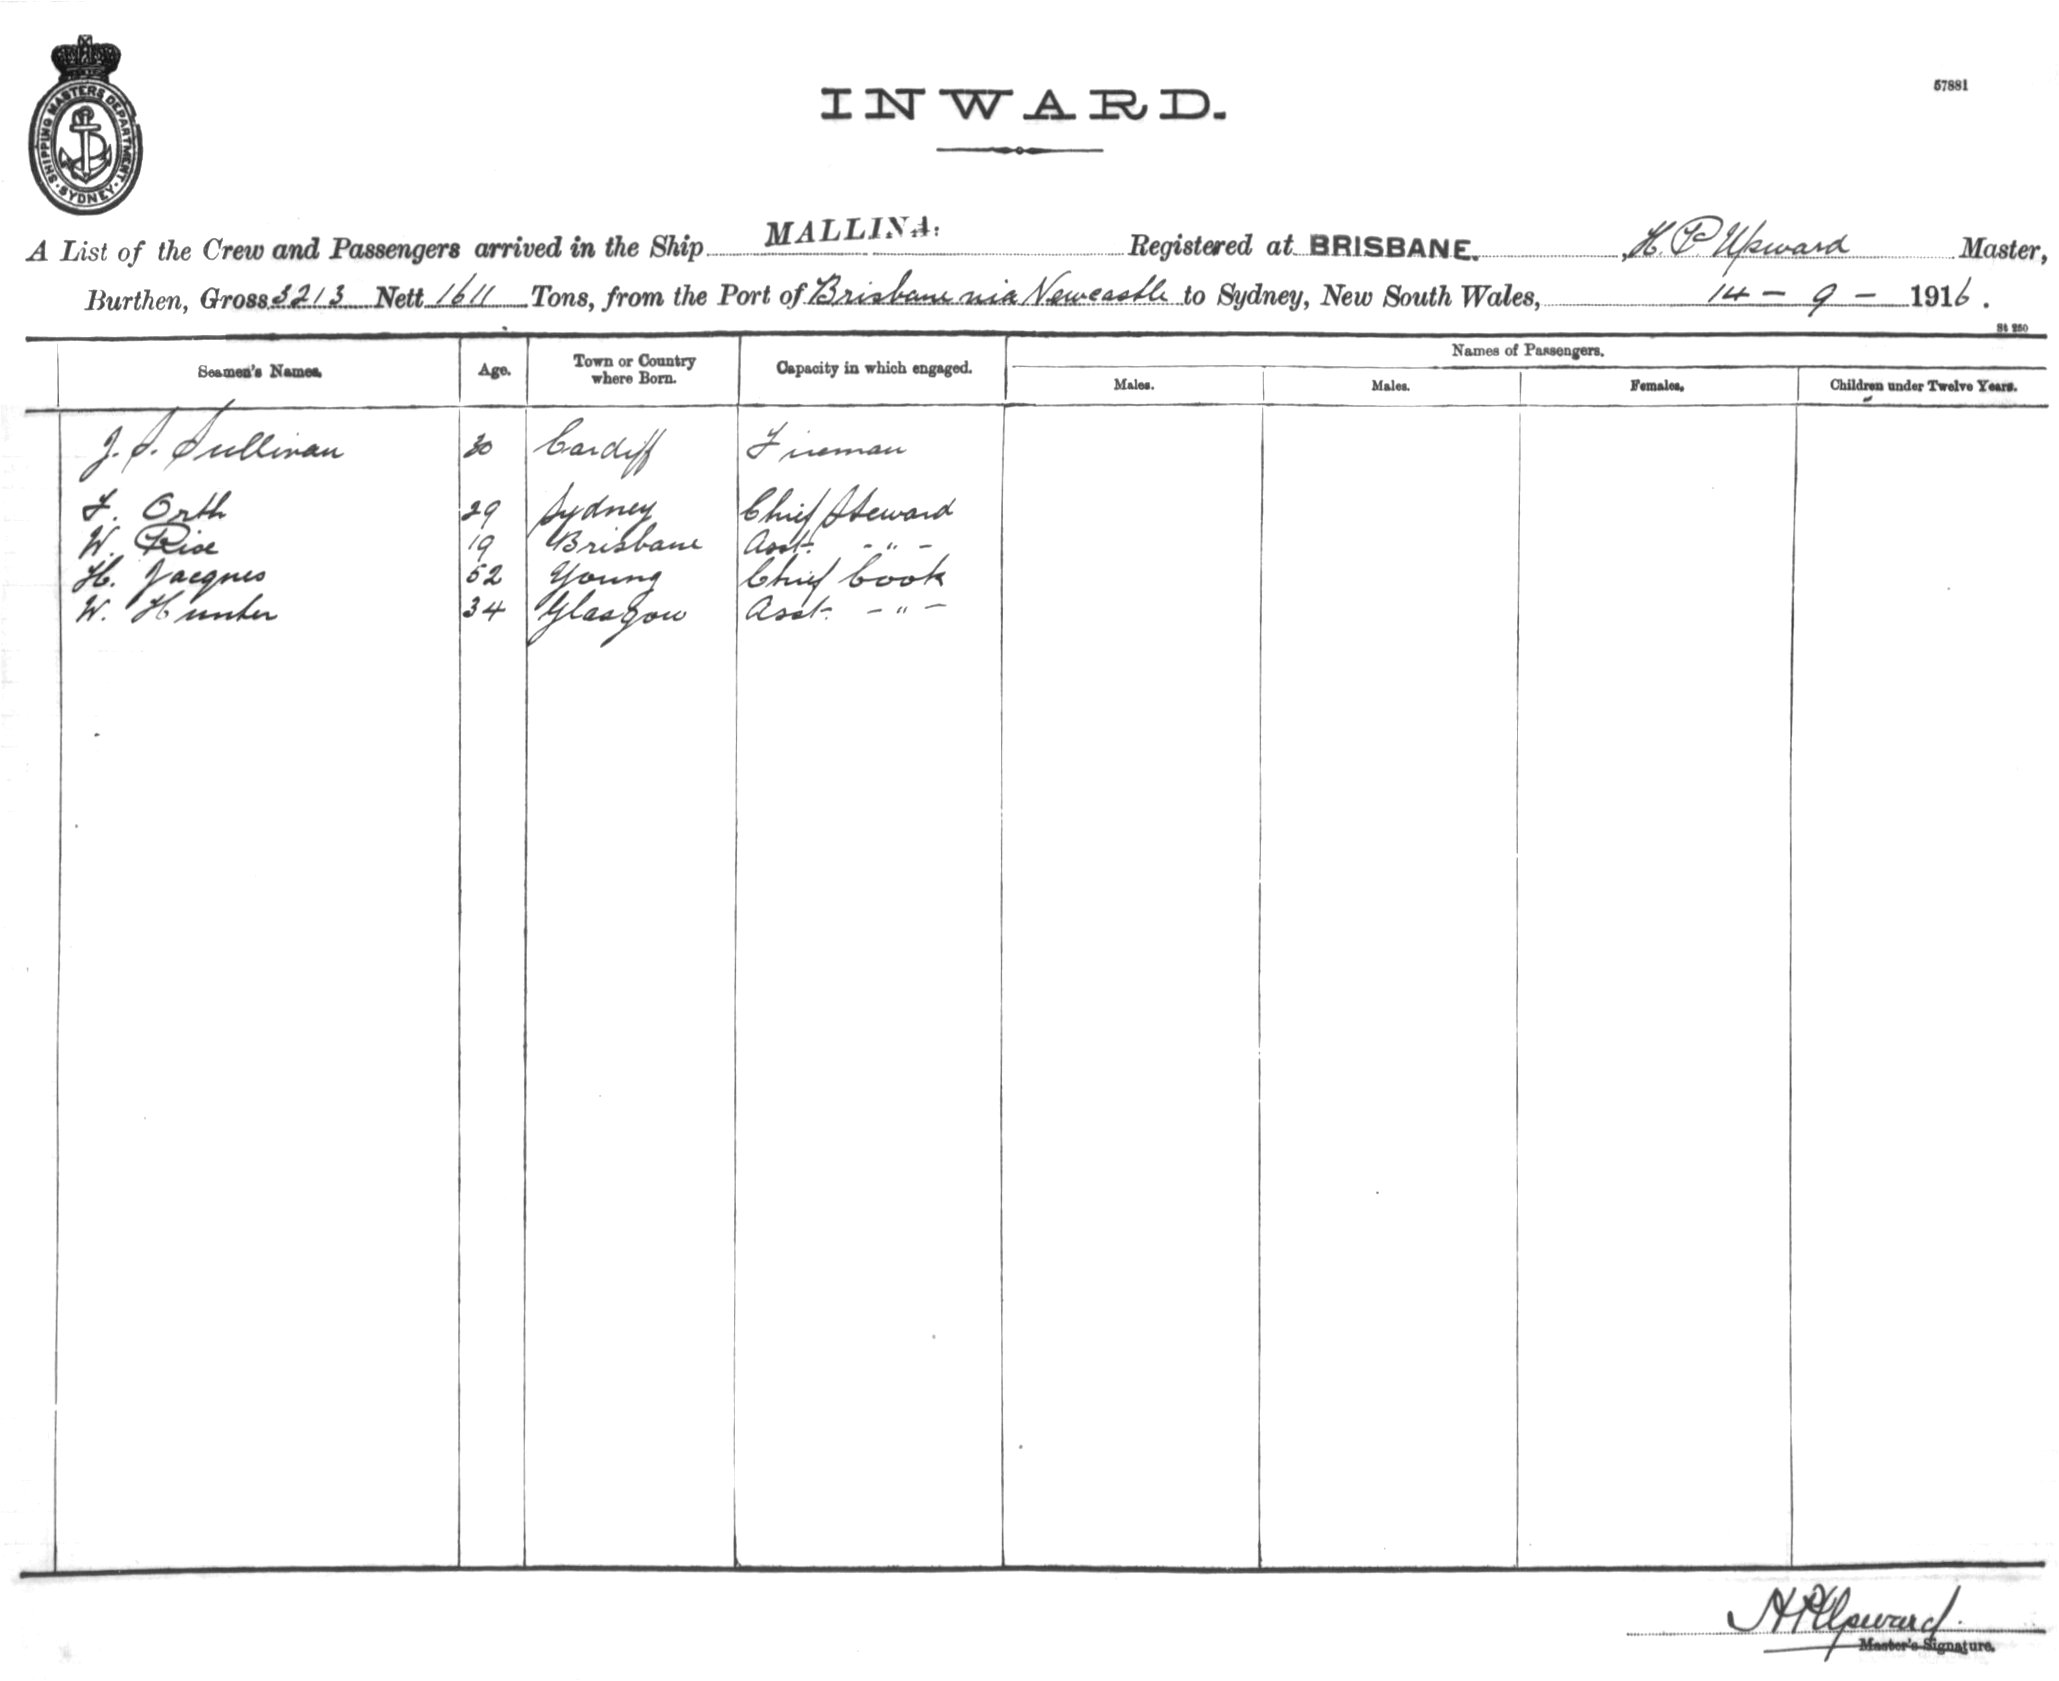 57881
SHIPPING MASTERS DEPARTMENT
SYDNEY
INWARD.
A List of the Crew and Passengers arrived in the Ship MALLINA. Registered at BRISBANE. H. P. Upward Master,
Burthen, Gross 3213 Nett 1611 Tons, from the Port of Brisbane via Newcastle to Sydney, New South Wales, 14 - 9 - 1916.
St 250
Seamen's Names. Age. Town or Country where Born. Capacity in which engaged. Names of Passengers.
Males. Males. Females. Children under Twelve Years.
J. S. Sullivan 30 Cardiff Fireman
F. Orth 29 Sydney Chief Steward
W. Rise 19 Brisbane Asst. - " -
H. Jacques 52 Young Chief Cook
W. Hunter 34 Glasgow Asst. - " -
H P Upward
Master's Signature.